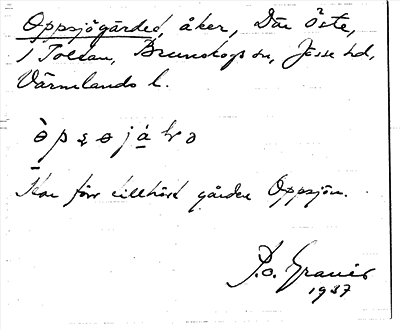 Oppsjögärdet, åker, Där Öste,
i Tolsan, Brunskogs sn, Jösse hd,
Värmlands l.
Har förr tillhört gården Oppsjön.
P.O. Graner
1937